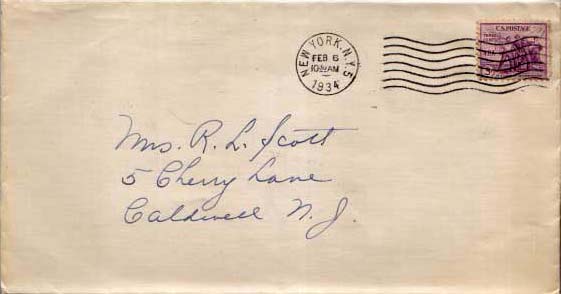 U.S. POSTAGE
NEW YORK, N.Y. 5
FEB 6
10 AM
1934
Mrs. R. L. Scott
5 Cherry Lane
Caldwell N. J.